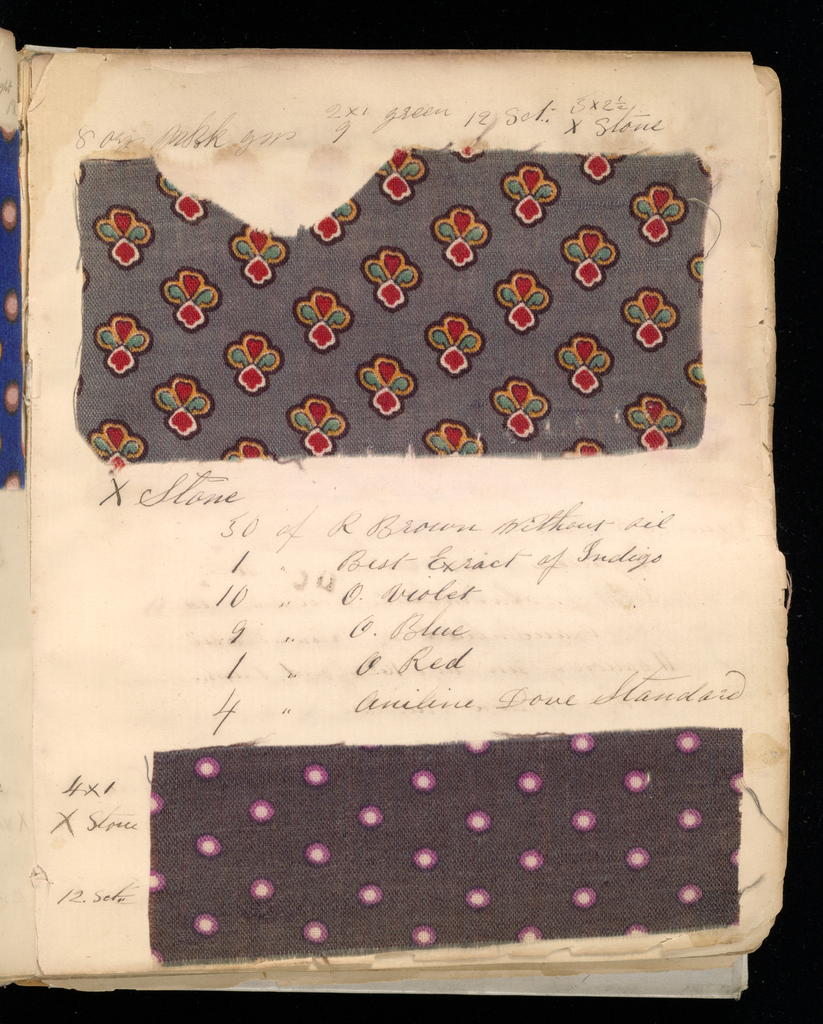 8 ozs gum 2x1 green 12 Set: 3x2½
9 X Stone
X Stone
30 of R Brown without oil
1 " Best Exract of Indigo
10 " O. Violet
9 " O. Blue
1 " O. Red
4 " Aniline Dove Standard
4x1
X Stone
12. Set: